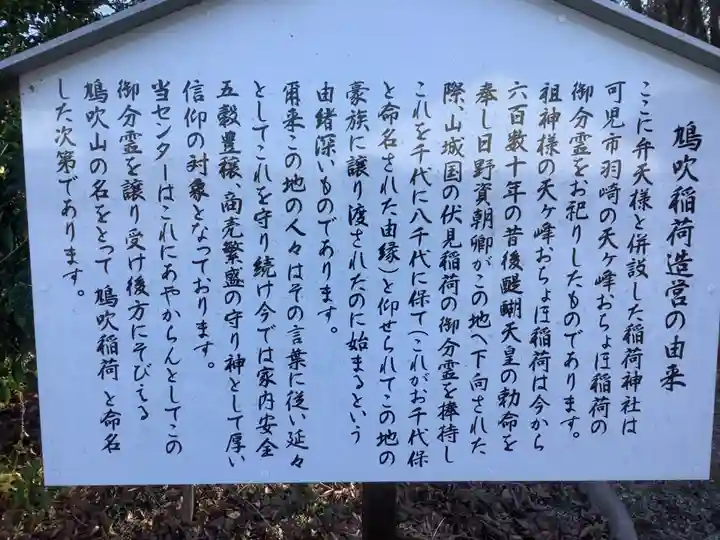 鳩吹稲荷造営の由来
ここに弁天様と併設した稲荷神社は
可児市羽崎の天ヶ峰おちょぼ稲荷の
御分霊をお祀りしたものであります。
祖神様の天ヶ峰おちょぼ稲荷は今から
六百数十年の昔後醍醐天皇の勅命を
奉し日野資朝卿がこの地へ下向された
際、山城国の伏見稲荷の御分霊を捧持し
これを千代に八千代に保て(これがお千代保
と命名された由縁)と仰せられてこの地の
豪族に譲り渡されたのに始まるという
由緒深いものであります。
爾来この地の人々はその言葉に従い延々
としてこれを守り続け今では家内安全
五穀豊穣、商売繁盛の守り神として厚い
信仰の対象となっております。
当センターはこれにあやからんとしてこの
御分霊を譲り受け後方にそびえる
鳩吹山の名をとって鳩吹稲荷と命名
した次第であります。